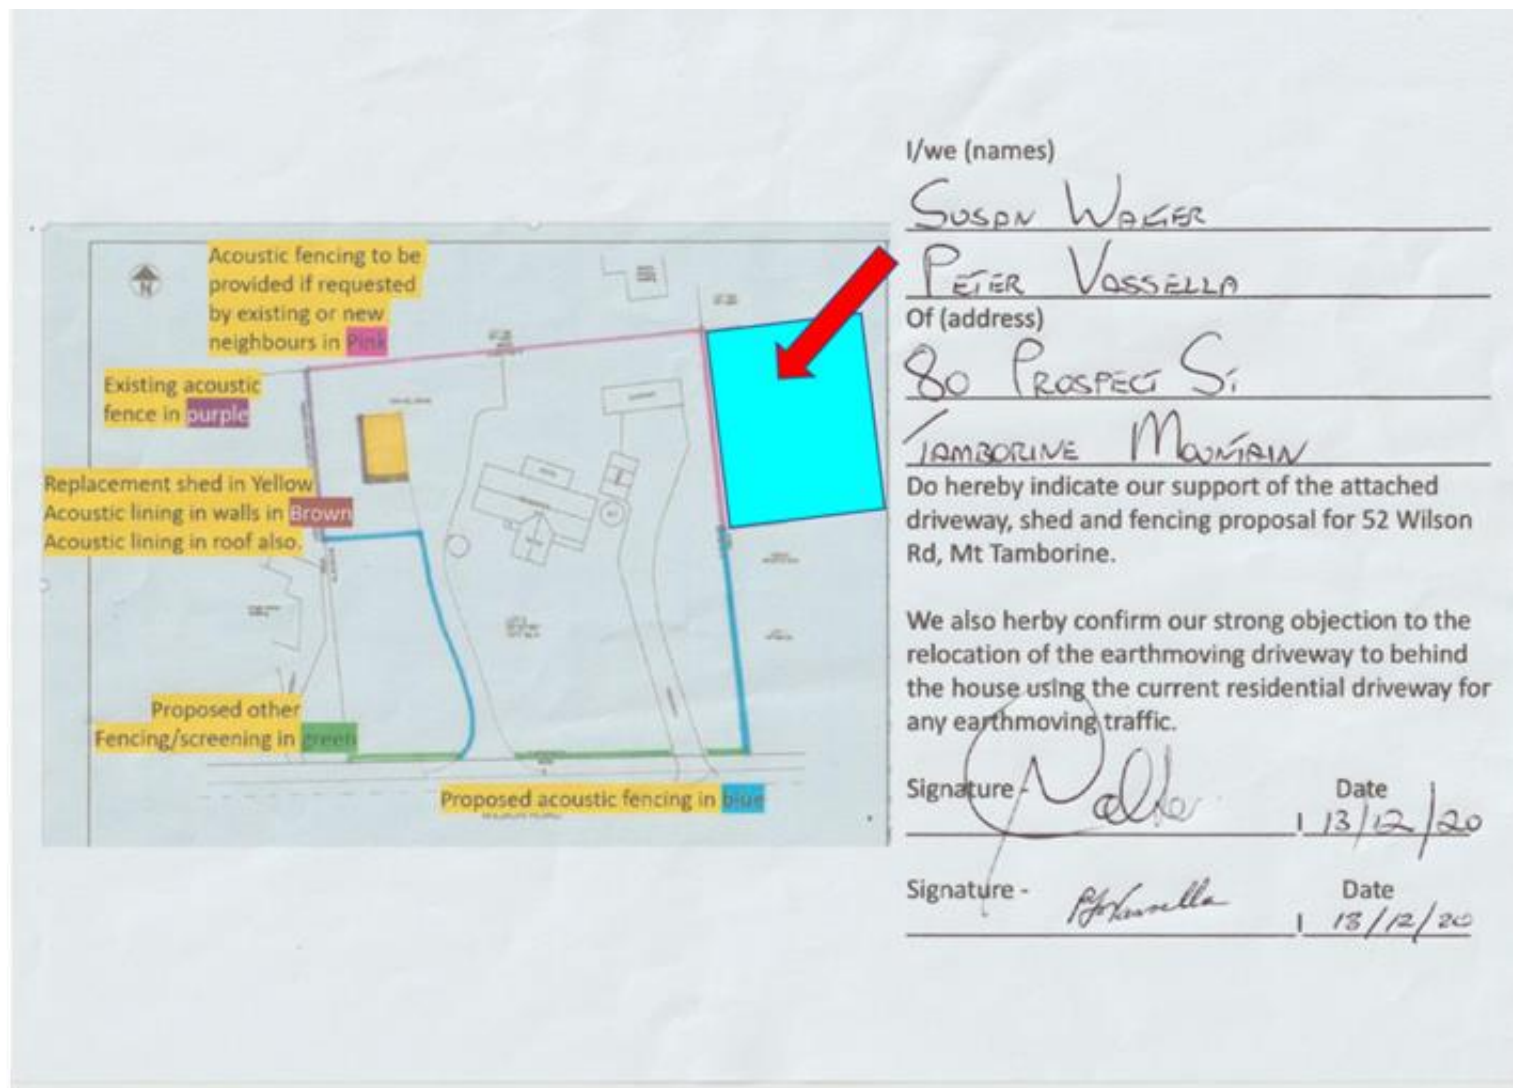 Acoustic fencing to be
provided if requested
by existing or new
neighbours in Pink
N
Existing acoustic
fence in purple
Replacement shed in Yellow
Acoustic lining in walls in Brown
Acoustic lining in roof also.
Proposed other
Fencing/screening in green
Proposed acoustic fencing in blue
I/we (names)
SUSAN
PETER VASSELLA
Of (address)
80 PROSPECT ST
TAMBORINE MOUNTAIN
Do hereby indicate our support of the attached
driveway, shed and fencing proposal for 52 Wilson
Rd, Mt Tamborine.
We also herby confirm our strong objection to the
relocation of the earthmoving driveway to behind
the house using the current residential driveway for
any earthmoving traffic.
Signature - Date
13/12/20
Signature - Date
PJ Vassella 13/12/20